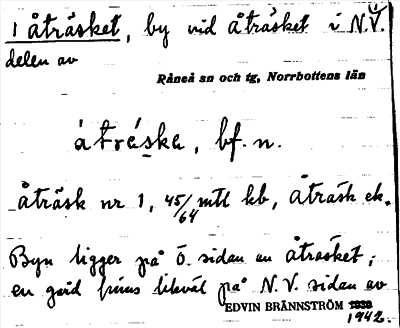 1 åträsket, by vid åträsket i N.V.
delen av
Råneå sn och tg, Norrbottens län
åtréska, bf. n.
Åträsk nr 1, 45/64 mtl kb, Åträsk ek.
Byn ligger på Ö. sidan an åträsket;
en gård finns likväl på N.V. sidan av
EDVIN BRÄNNSTRÖM 1938
1942.